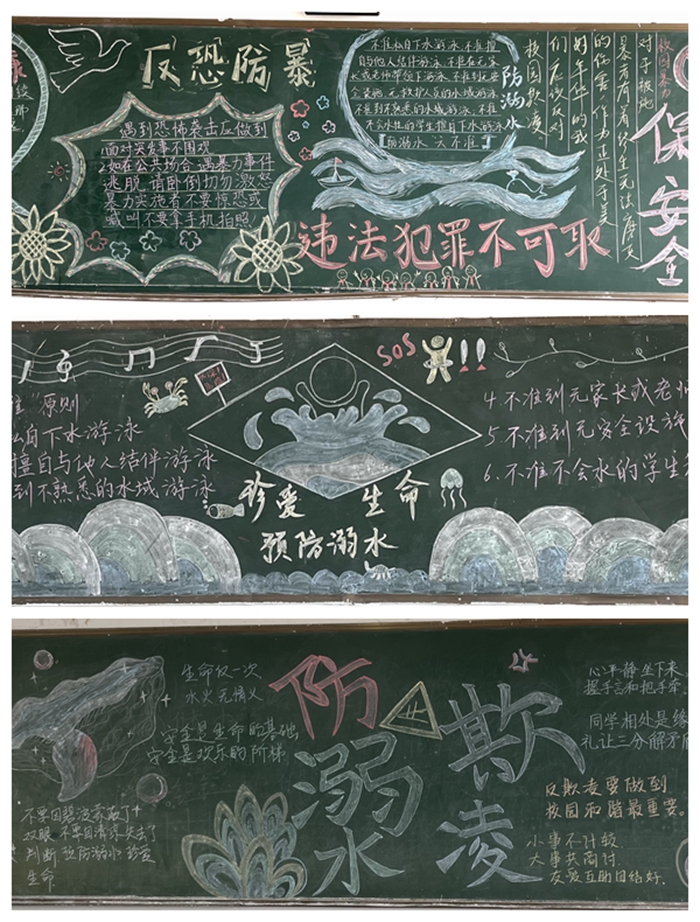 反恐防暴
遇到恐怖袭击应做到
面对突发事不围观
2.如在公共场合遇暴力事件
逃脱 请卧倒切勿激怒
暴力实施者不要惊恐或
喊叫不要拿手机拍照!
不准私自下水游泳 不准擅
自与他人结伴游泳 不准在无家
长或老师带领下游泳 不准到无
不准到不熟悉的水域游泳 不准
不会水性的学生擅自下水
防溺水 六不准
防溺水
校园欺凌
们应该反对
好年华的我
对于被
校园暴力
保安全
违法犯罪不可取
SOS
原则
私自下水游泳
擅自与他人结伴游泳
到不熟悉的水域游泳
珍爱 生命
预防溺水
4.不准到无家长或老师
5.不准到无安全设施
6.不准不会水的学生
生命仅一次
水火无情义
安全是生命的基础
安全是欢乐的阶梯
生命
防溺水
欺凌
心平静坐下来
握手言和把手牵
同学相处是缘
礼让三分解矛盾
反欺凌要做到
校园和谐最重要。
小事不计较
大事共商讨
友爱互助团结好.